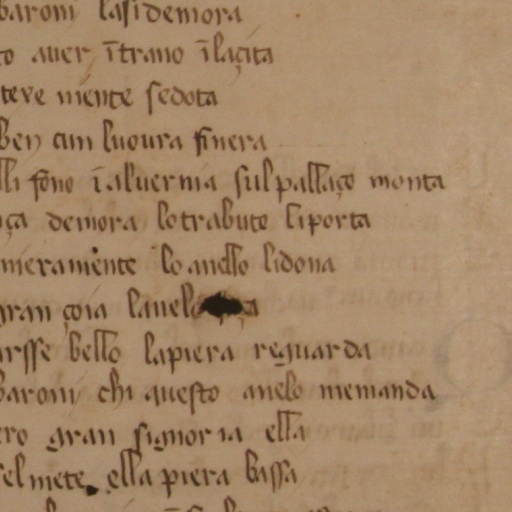 baroni lasidemora
to auer ītrano īlaçita
teve niente sedota
ben cun luovra finera
lli fōno ī aluernia sul pallaço monta
nça demora lo trabuto li porta
nieramente lo anello lidona
gran çoia lanelo
arsse bello lapiera reguarda
baroni chi questo anelo me manda
ero gran signoria ella
sel mete ella piera bassa